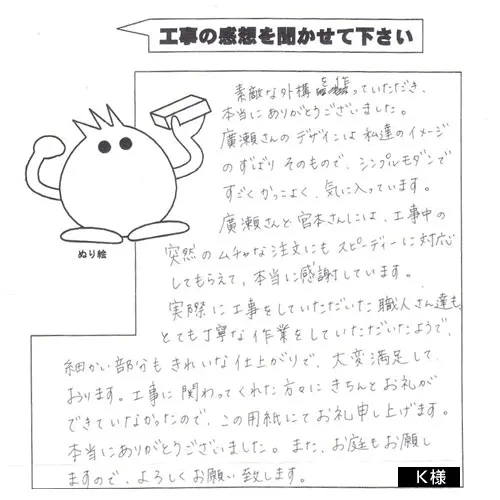 工事の感想を聞かせて下さい
素敵な外構っていただき、
本当にありがとうございました。
廣瀬さんのデザインは私達のイメージ
のずばりそのもので、シンプルモダンで
すごくかっこよく、気に入っています。
廣瀬さんと宮本さんには、工事中の
突然のムチャな注文にもスピーディーに対応
してもらえて、本当に感謝しています。
実際に工事をしていただいた職人さん達も、
とても丁寧な作業をしていただいたようで、
細かい部分もきれいな仕上がりで、大変満足して
おります。工事に関わってくれた方々にきちんとお礼が
できていなかったので、この用紙にてお礼申し上げます。
本当にありがとうございました。また、お庭もお願いし
ますので、よろしくお願い致します。
ぬり絵
K様